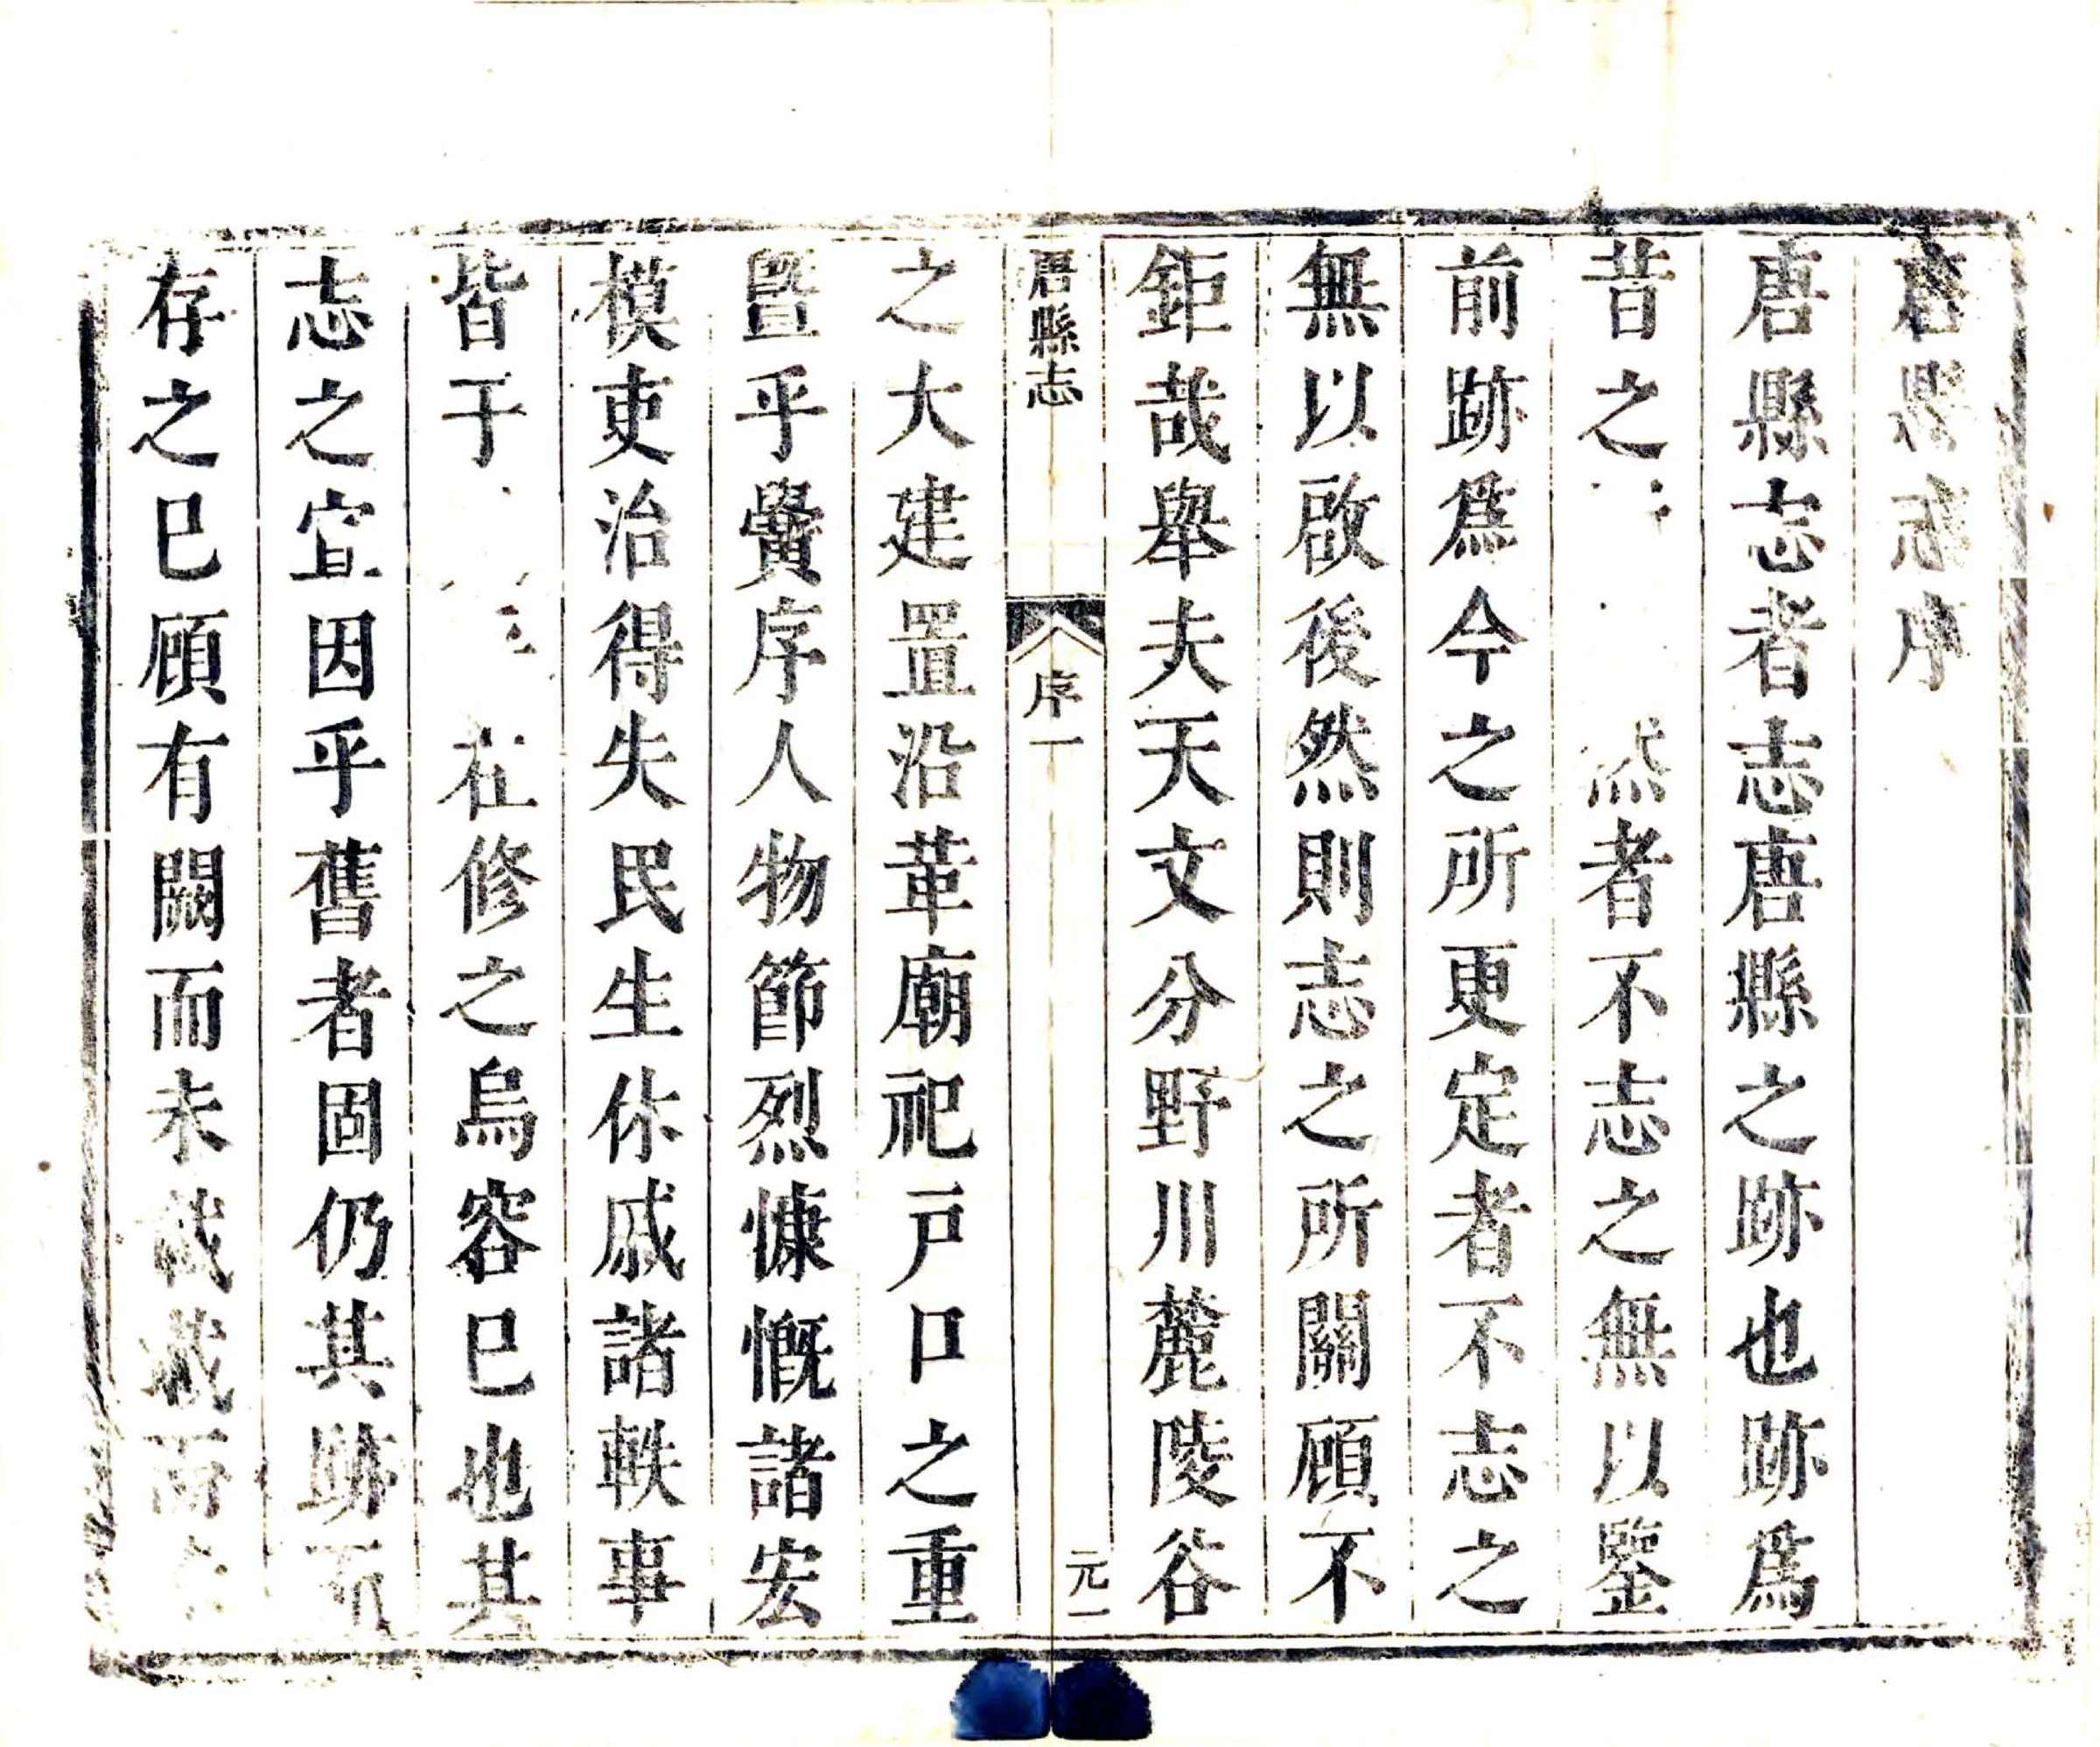 唐縣志序
唐縣志者志唐縣之跡也跡爲
昔之者不志之無以鑒
前跡爲今之所更定者不志之
無以啟後然則志之所關顧不
鉅哉舉夫天文分野川麓陵谷
唐縣志
序一
元一
之大建置沿革廟祀戸口之重
暨乎黌序人物節烈慷慨諸宏
模吏治得失民生休戚諸軼事
皆于在修之烏容巳也其
志之宜因乎舊者固仍其跡而
存之巳顧有闕而未載